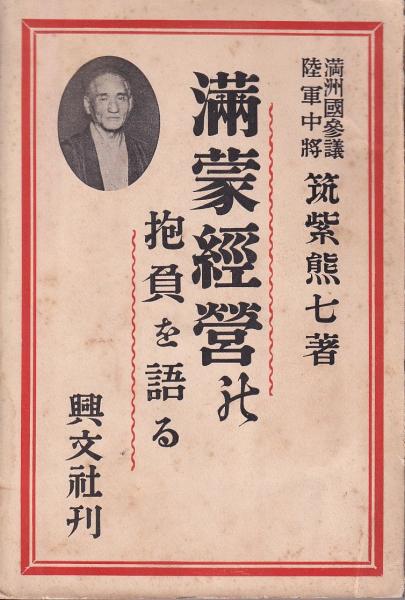 満洲國參議
陸軍中將
筑紫熊七著
滿蒙經營の
抱負を語る
興文社刊